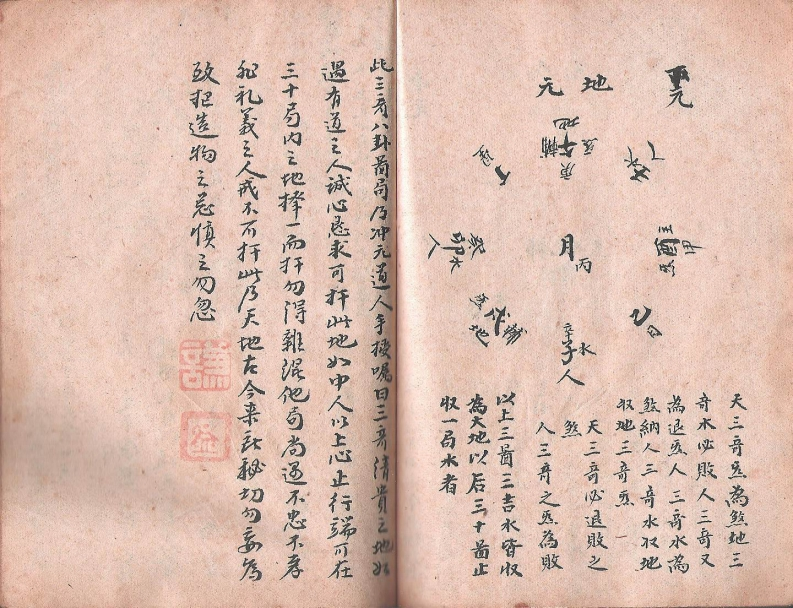 下元
地元
月
丙
水
辛子
人
乙
甲
天三奇炁為煞地三
奇水必敗人三奇又
為退炁人三奇水為
煞納人三奇水收地
收地三奇炁一
天三奇必退敗之
煞
人三奇之炁為敗
以上三啚三吉水皆收
為天地以后三十啚止
收一局水者
此三奇八卦啚局乃冲元道人手授囑曰三奇清貴之地如
遇有道之人誠心恳求可扦此地如中人以上心止行端可在
三十局内之地择一而扦勿得雜混他奇尚遇不忠不孝
非礼義之人戒不可扦此乃天地古今来秘切勿妄為
致犯造物之忌慎之勿忽